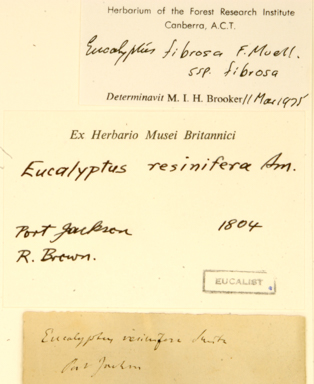 Herbarium of the Forest Research Institute
Canberra, A.C.T.
Eucalyptus fibrosa F. Muell.
ssp. fibrosa
Determinavit M. I. H. Brooker 11 Mar 1975
Ex Herbario Musei Britannici
Eucalyptus resinifera Sm.
Port Jackson 1804
R. Brown.
EUCALIST
Eucalyptus resinifera
Port Jackson